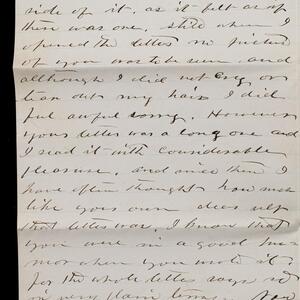 side of it, as it felt as if
there was one. Still when I
opened the letter no picture
of you was to be seen and
although I did not cry or
tear out my hair I did
feel awful sorry. However
your letter was a long one and
I read it with considerable
pleasure, and since then I
have often thought how much
like your own dear self
that letter was. I know that
you were in a good
mor when you wrote it.
for the whole letter says so
in very plain terms.